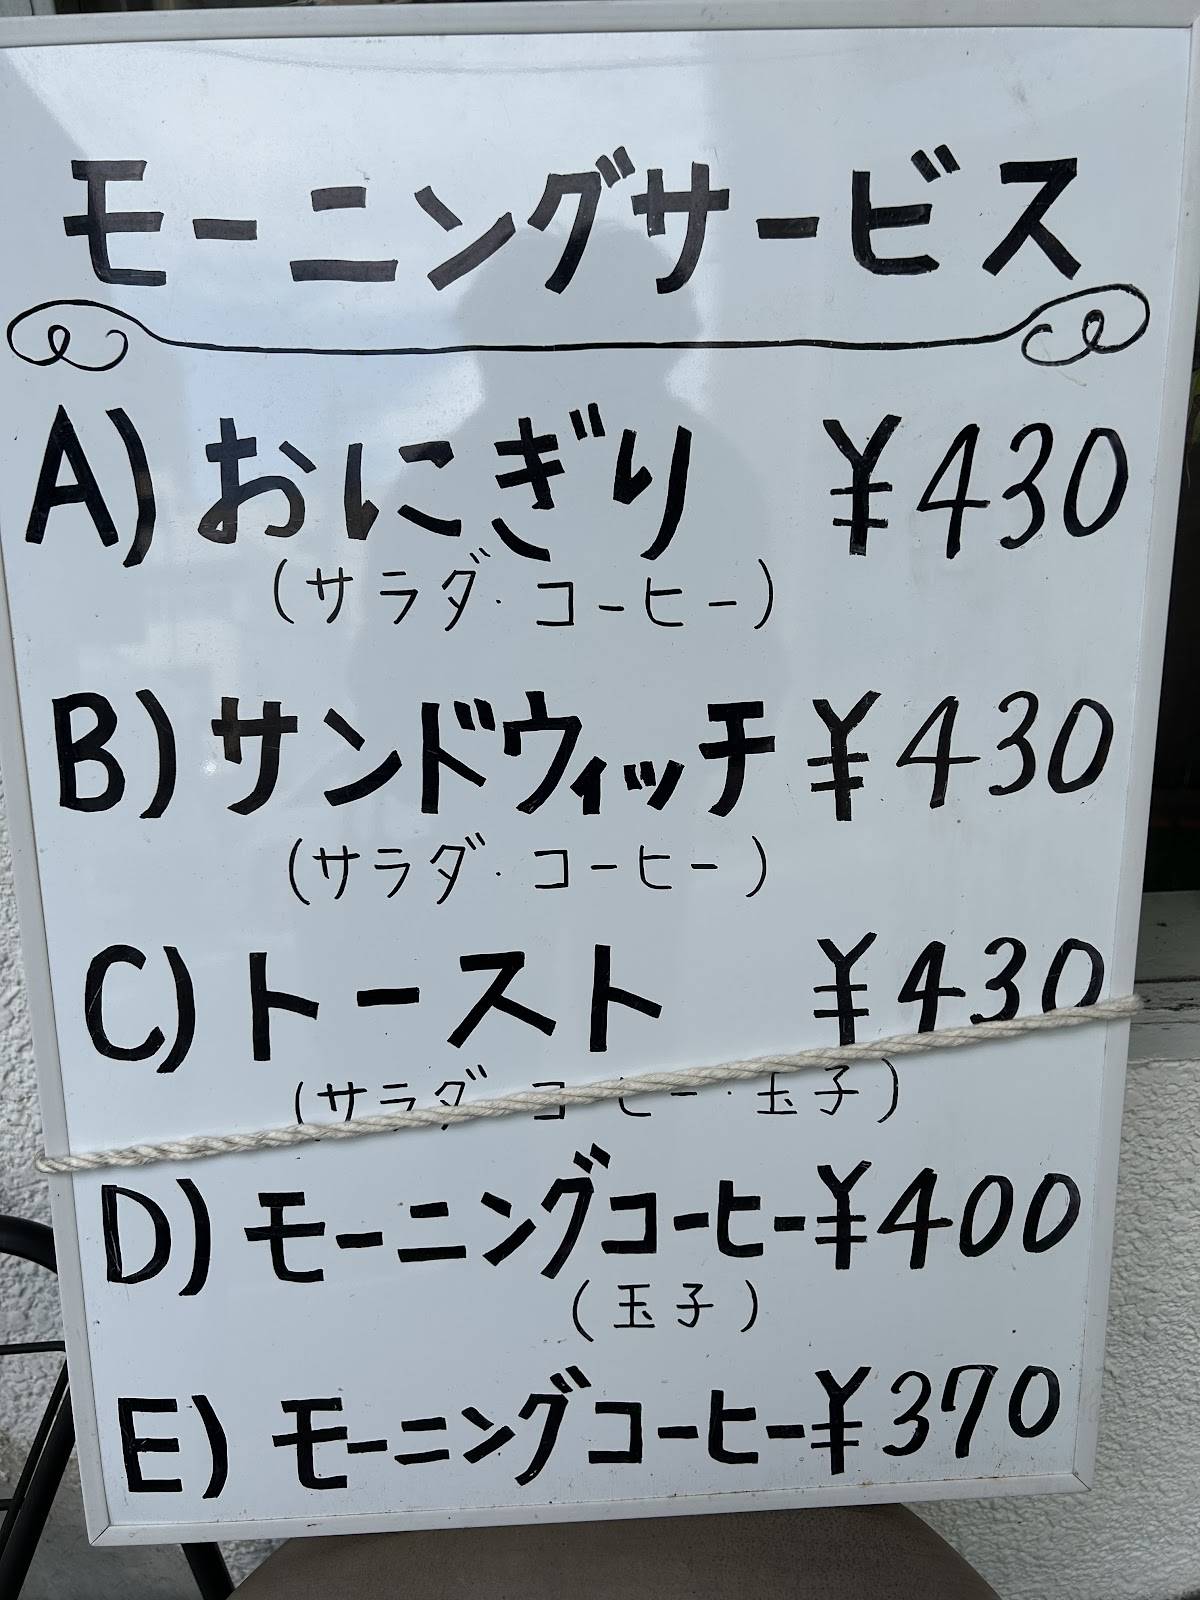 モーニングサービス
A) おにぎり ¥430
(サラダ・コーヒー)
B) サンドウィッチ ¥430
(サラダ・コーヒー)
C) トースト ¥430
(サラダ コーヒー・玉子)
D) モーニングコーヒー ¥400
(玉子)
E) モーニングコーヒー ¥370